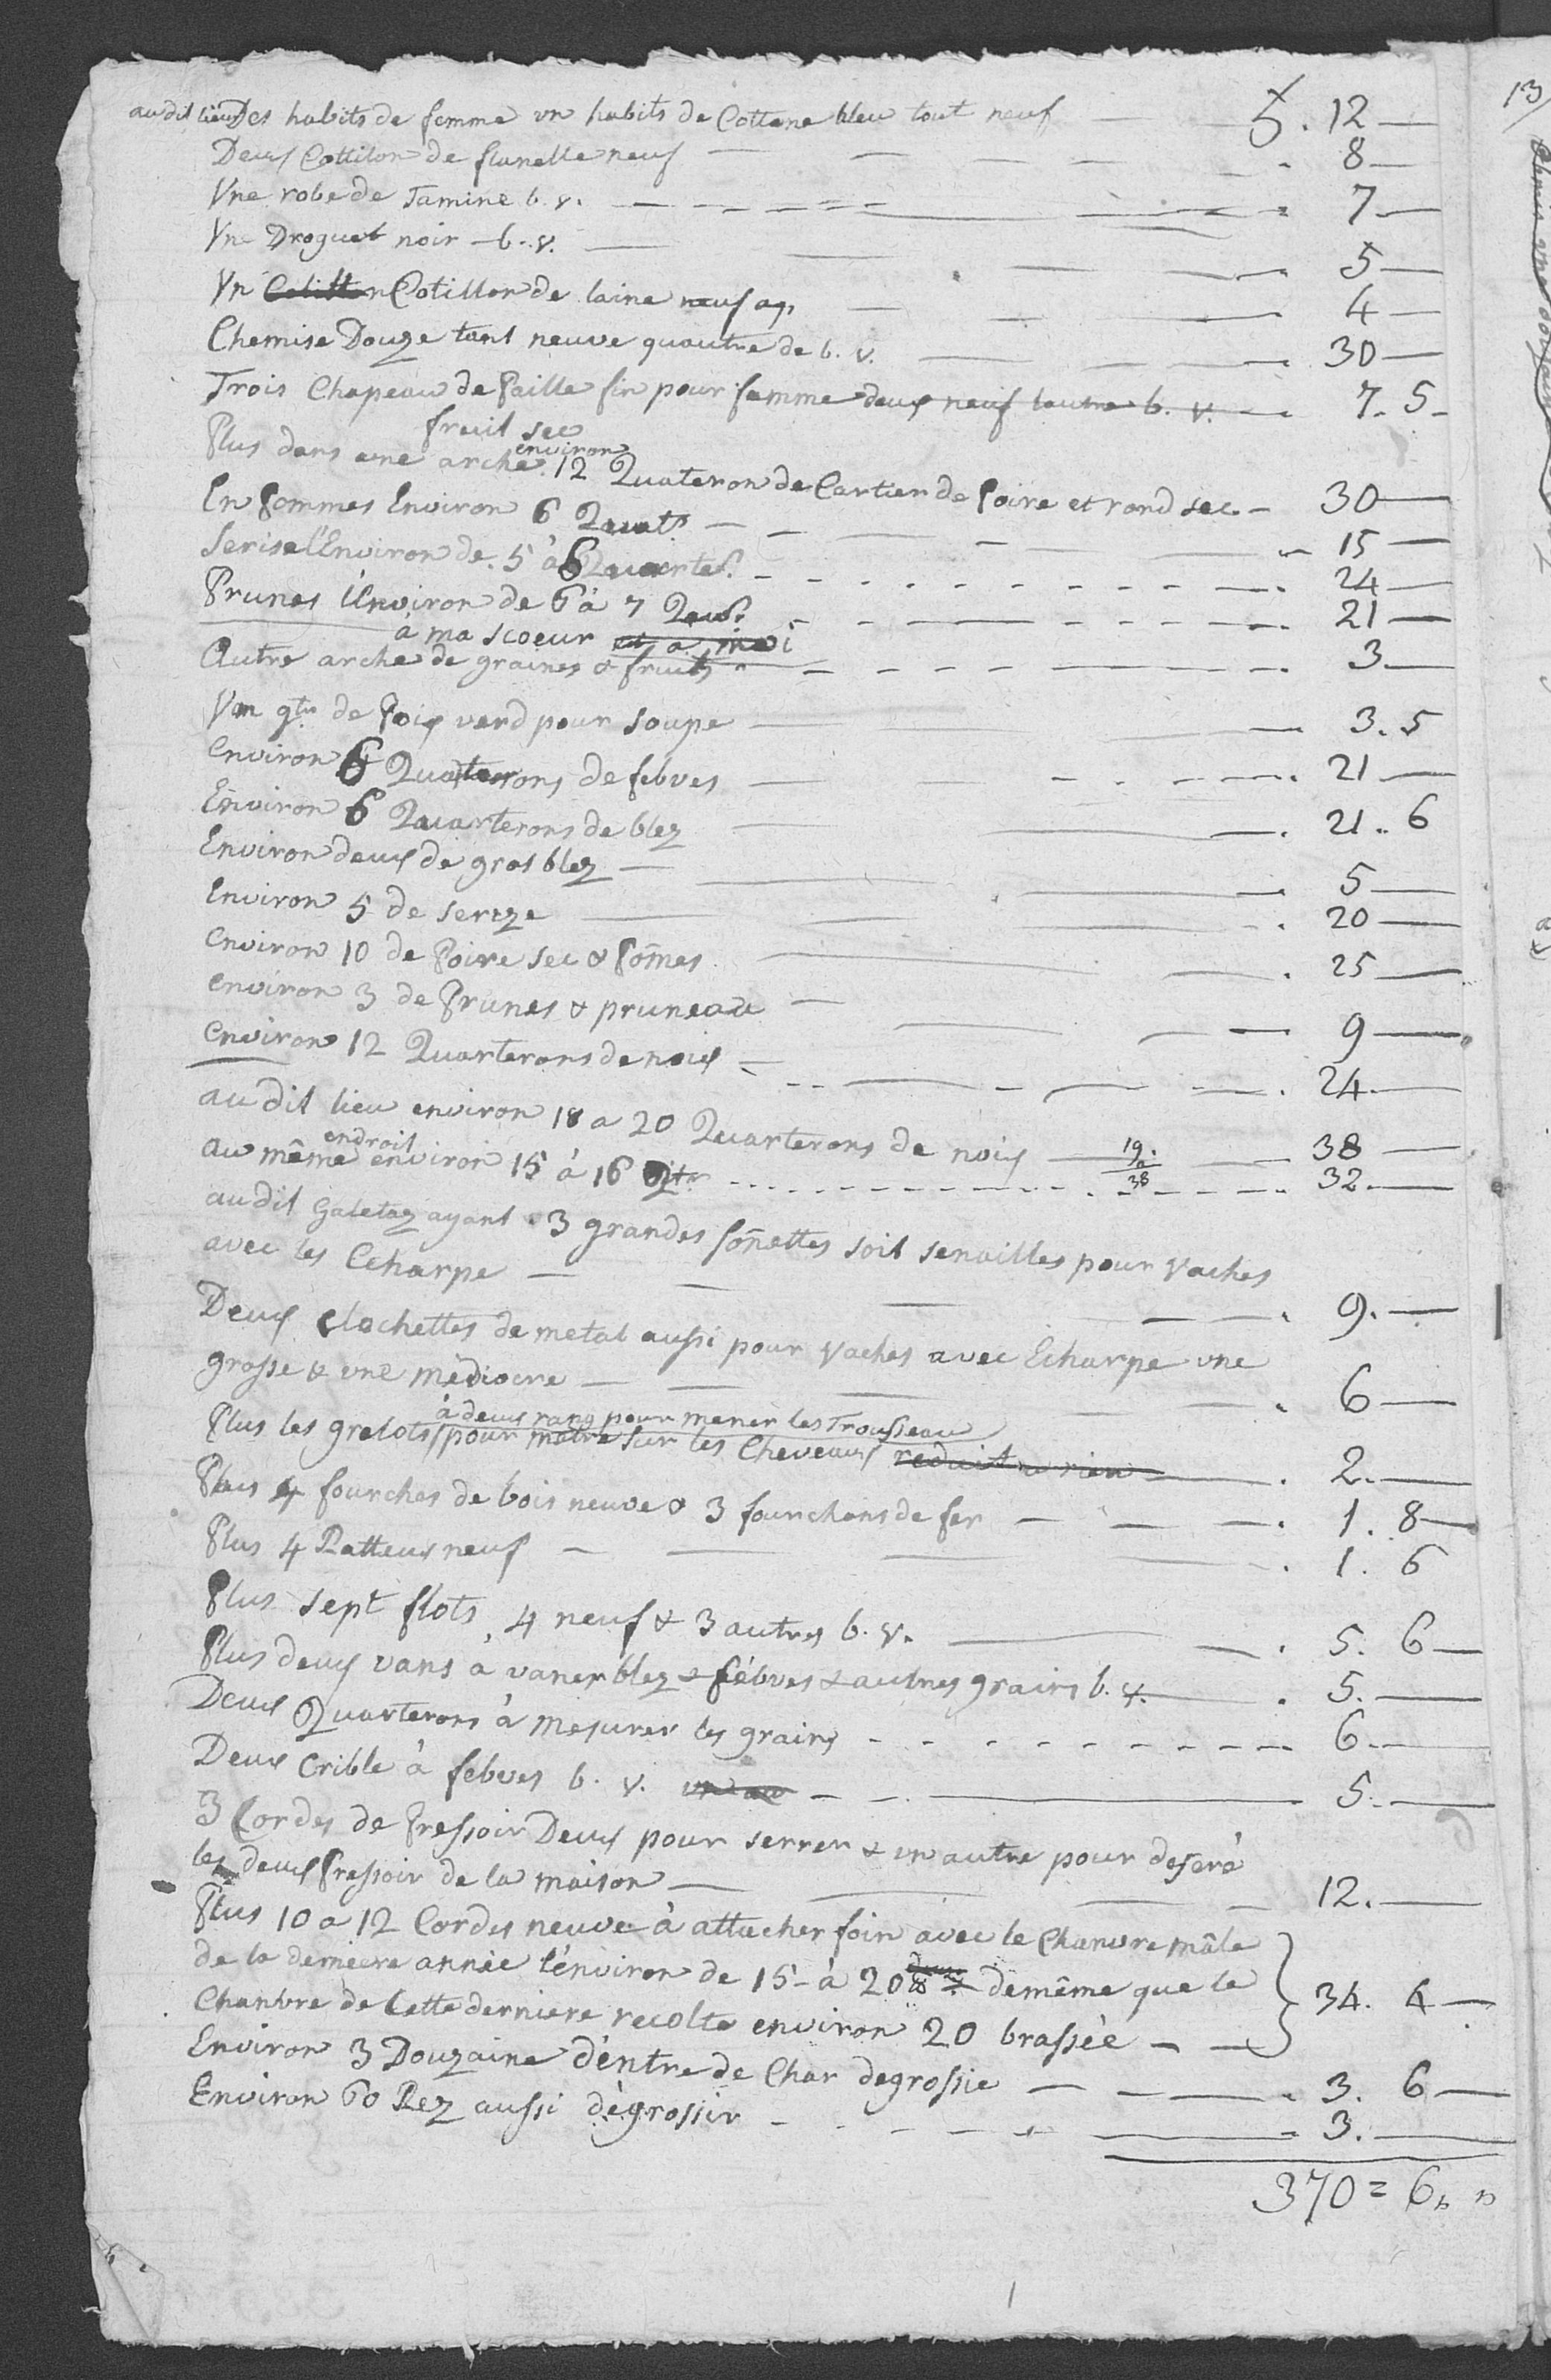 au dit lieu Des habits de femme vn habits de Cottone bleu tout neuf 5. 12 —
Deux Cottilon de flanelle neuf — 8 —
Vne robe de Tamine b. v. — 7 —
Vne Droguet noir — b. v. — 5 —
Vn Cotillon Cotillon de laine neuf — 4 —
Chemise Douze tant neuve quautre de b. v. — 30 —
Trois Chapeau de Paille fin pour femme deux neuf lautre b. v. — 7. 5 —
fruit sec
Plus dans une arche environ 12 Quateron de Cartier de Poire et rond sec — 30 —
En Pommes Environ 6 Quat. — 15 —
Serise l'Environ de 5 à 6 Quartes. — 24 —
Prunes l'Environ de 6 à 7 Quat. — 21 —
à ma scoeur et a moi
Autre arche de graines & fruits — 3 —
Vn qtr de Pois verd pour soupe — 3. 5
Environ 6 Quaterons de febves — 21 —
Environ 6 Quarterons de blez — 21. 6
Environ deux de gros blez — 5 —
Environ 5 de serize — 20 —
Environ 10 de Poire sec & Pom̄es — 25 —
environ 3 de Prunes & pruneau — 9 —
environ 12 Quarterons de noix — 24 —
au dit lieu environ 18 a 20 Quarterons de noix — 19. — 38 —
38
au même endroit environ 15 à 16 qtr — 32 —
au dit Galetaz ayant 3 grandes son̄ettes soit senailles pour Vaches
avec les Echarpe — 9. —
Deux clochettes de metal aussi pour Vaches avec Echarpe une
grosse & une médiocre — 6 —
à deux rang pour mener les Trousseau
Plus les grelots pour mettre sur les Cheveaux reduit a rien — 2. —
Plus 4 fourches de bois neuve & 3 fourchons de fer — 1. 8 —
Plus 4 Ratteux neuf — 1. 6
Plus sept flots 4 neuf & 3 autres b. v. — 5. 6 —
Plus deux vans à vaner blez & fébves & autres grains b. v. — 5. —
Deux Quarterons à mesurer les grains — 6. —
Deux Crible à febves b. v. — 5. —
3 Cordes de Pressoir Deux pour serrer & un autre pour deseré
les deux Pressoir de la maison — 12. —
Plus 10 a 12 Cordes neuve à attacher foin avec le Chanvre mâle
de la derniere année l'énviron de 15 à 20 demême que le
Chanvre de Cette derniere recolte environ 20 brassée — 34. 4 —
Environ 3 Douzaine d'éntre de Char degrossie — 3. 6 —
Environ 60 Rez aussi dégrossir — 3. —
370 = 6
13